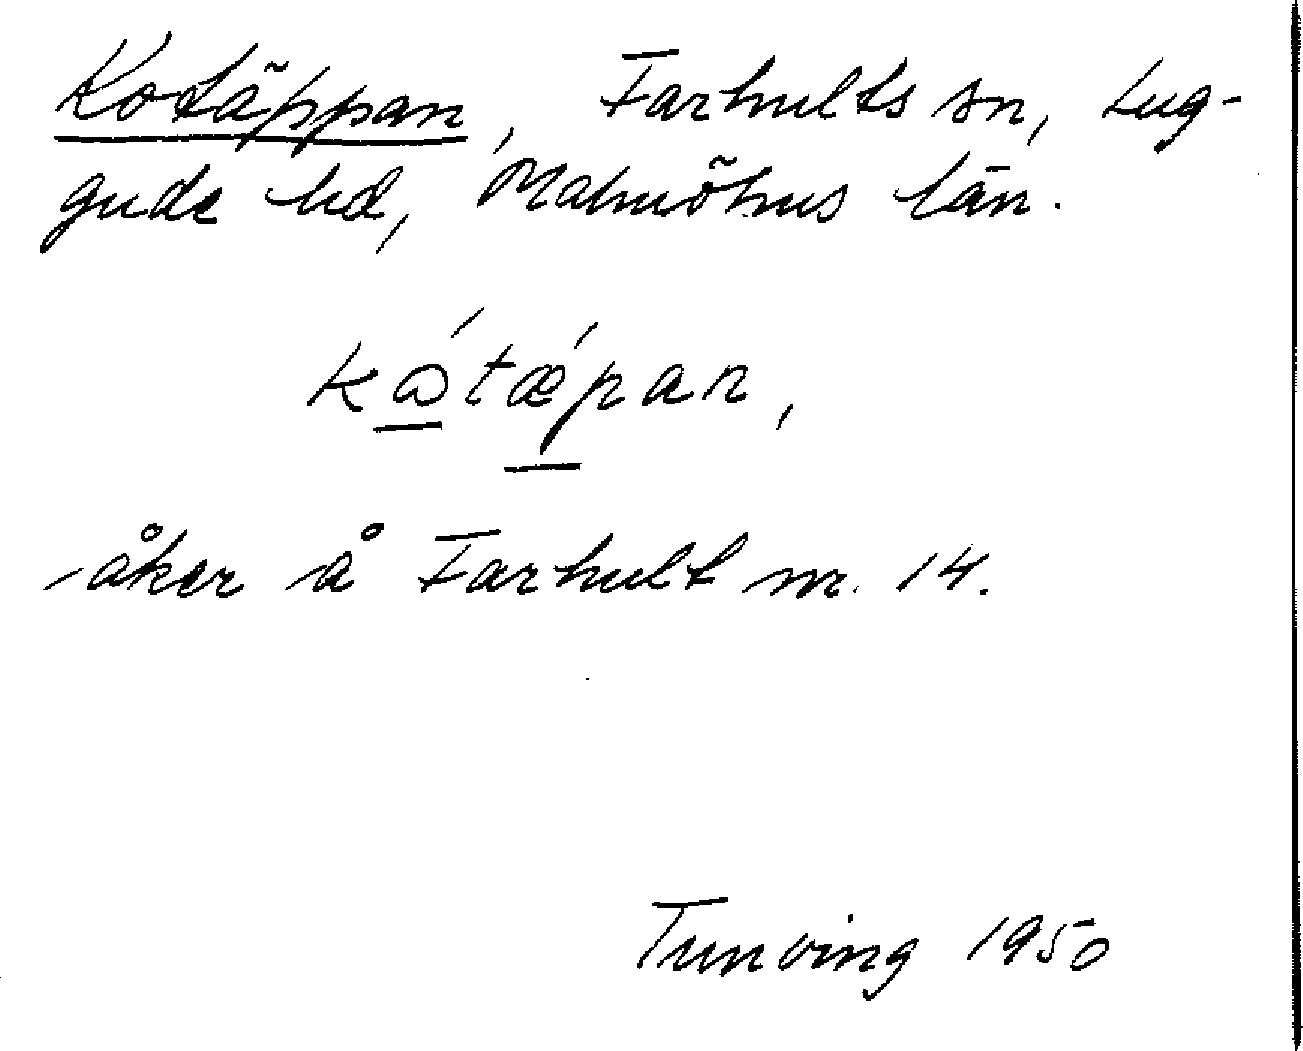 Kotäppan, Farhults sn, Lug-
gude hd, Malmöhus län.
kώtǽpan,
åker å Farhult nr. 14.
Tunving 1950